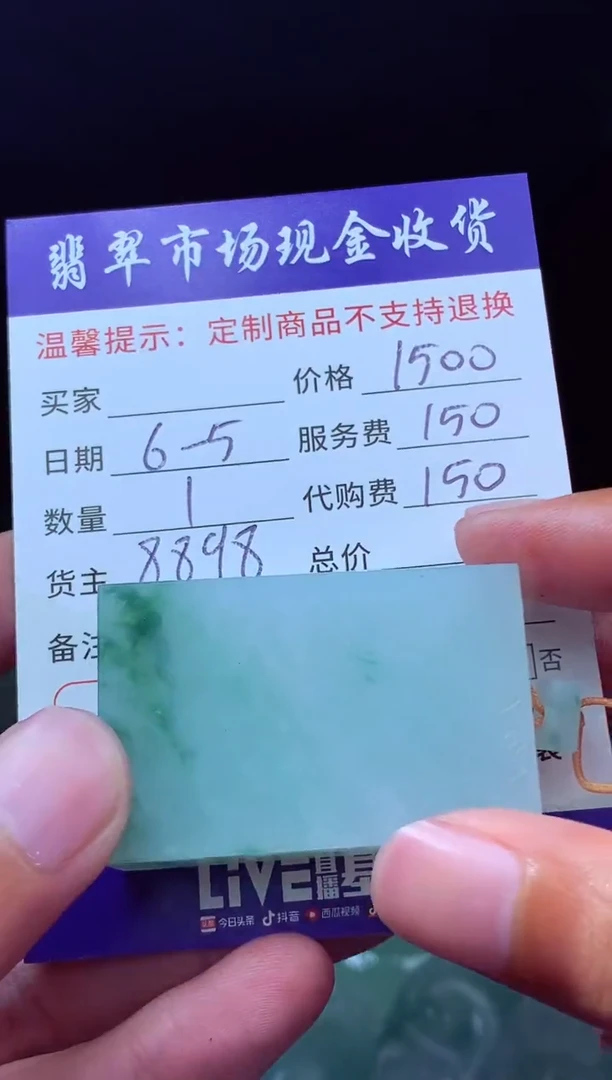 翡翠市场现金收货
温馨提示：定制商品不支持退换
买家 价格 1500
日期 6-5 服务费 150
数量 1 代购费 150
货主 8898 总价
备注 否
装
LIVE直播基
头条 今日头条 抖音 西瓜视频